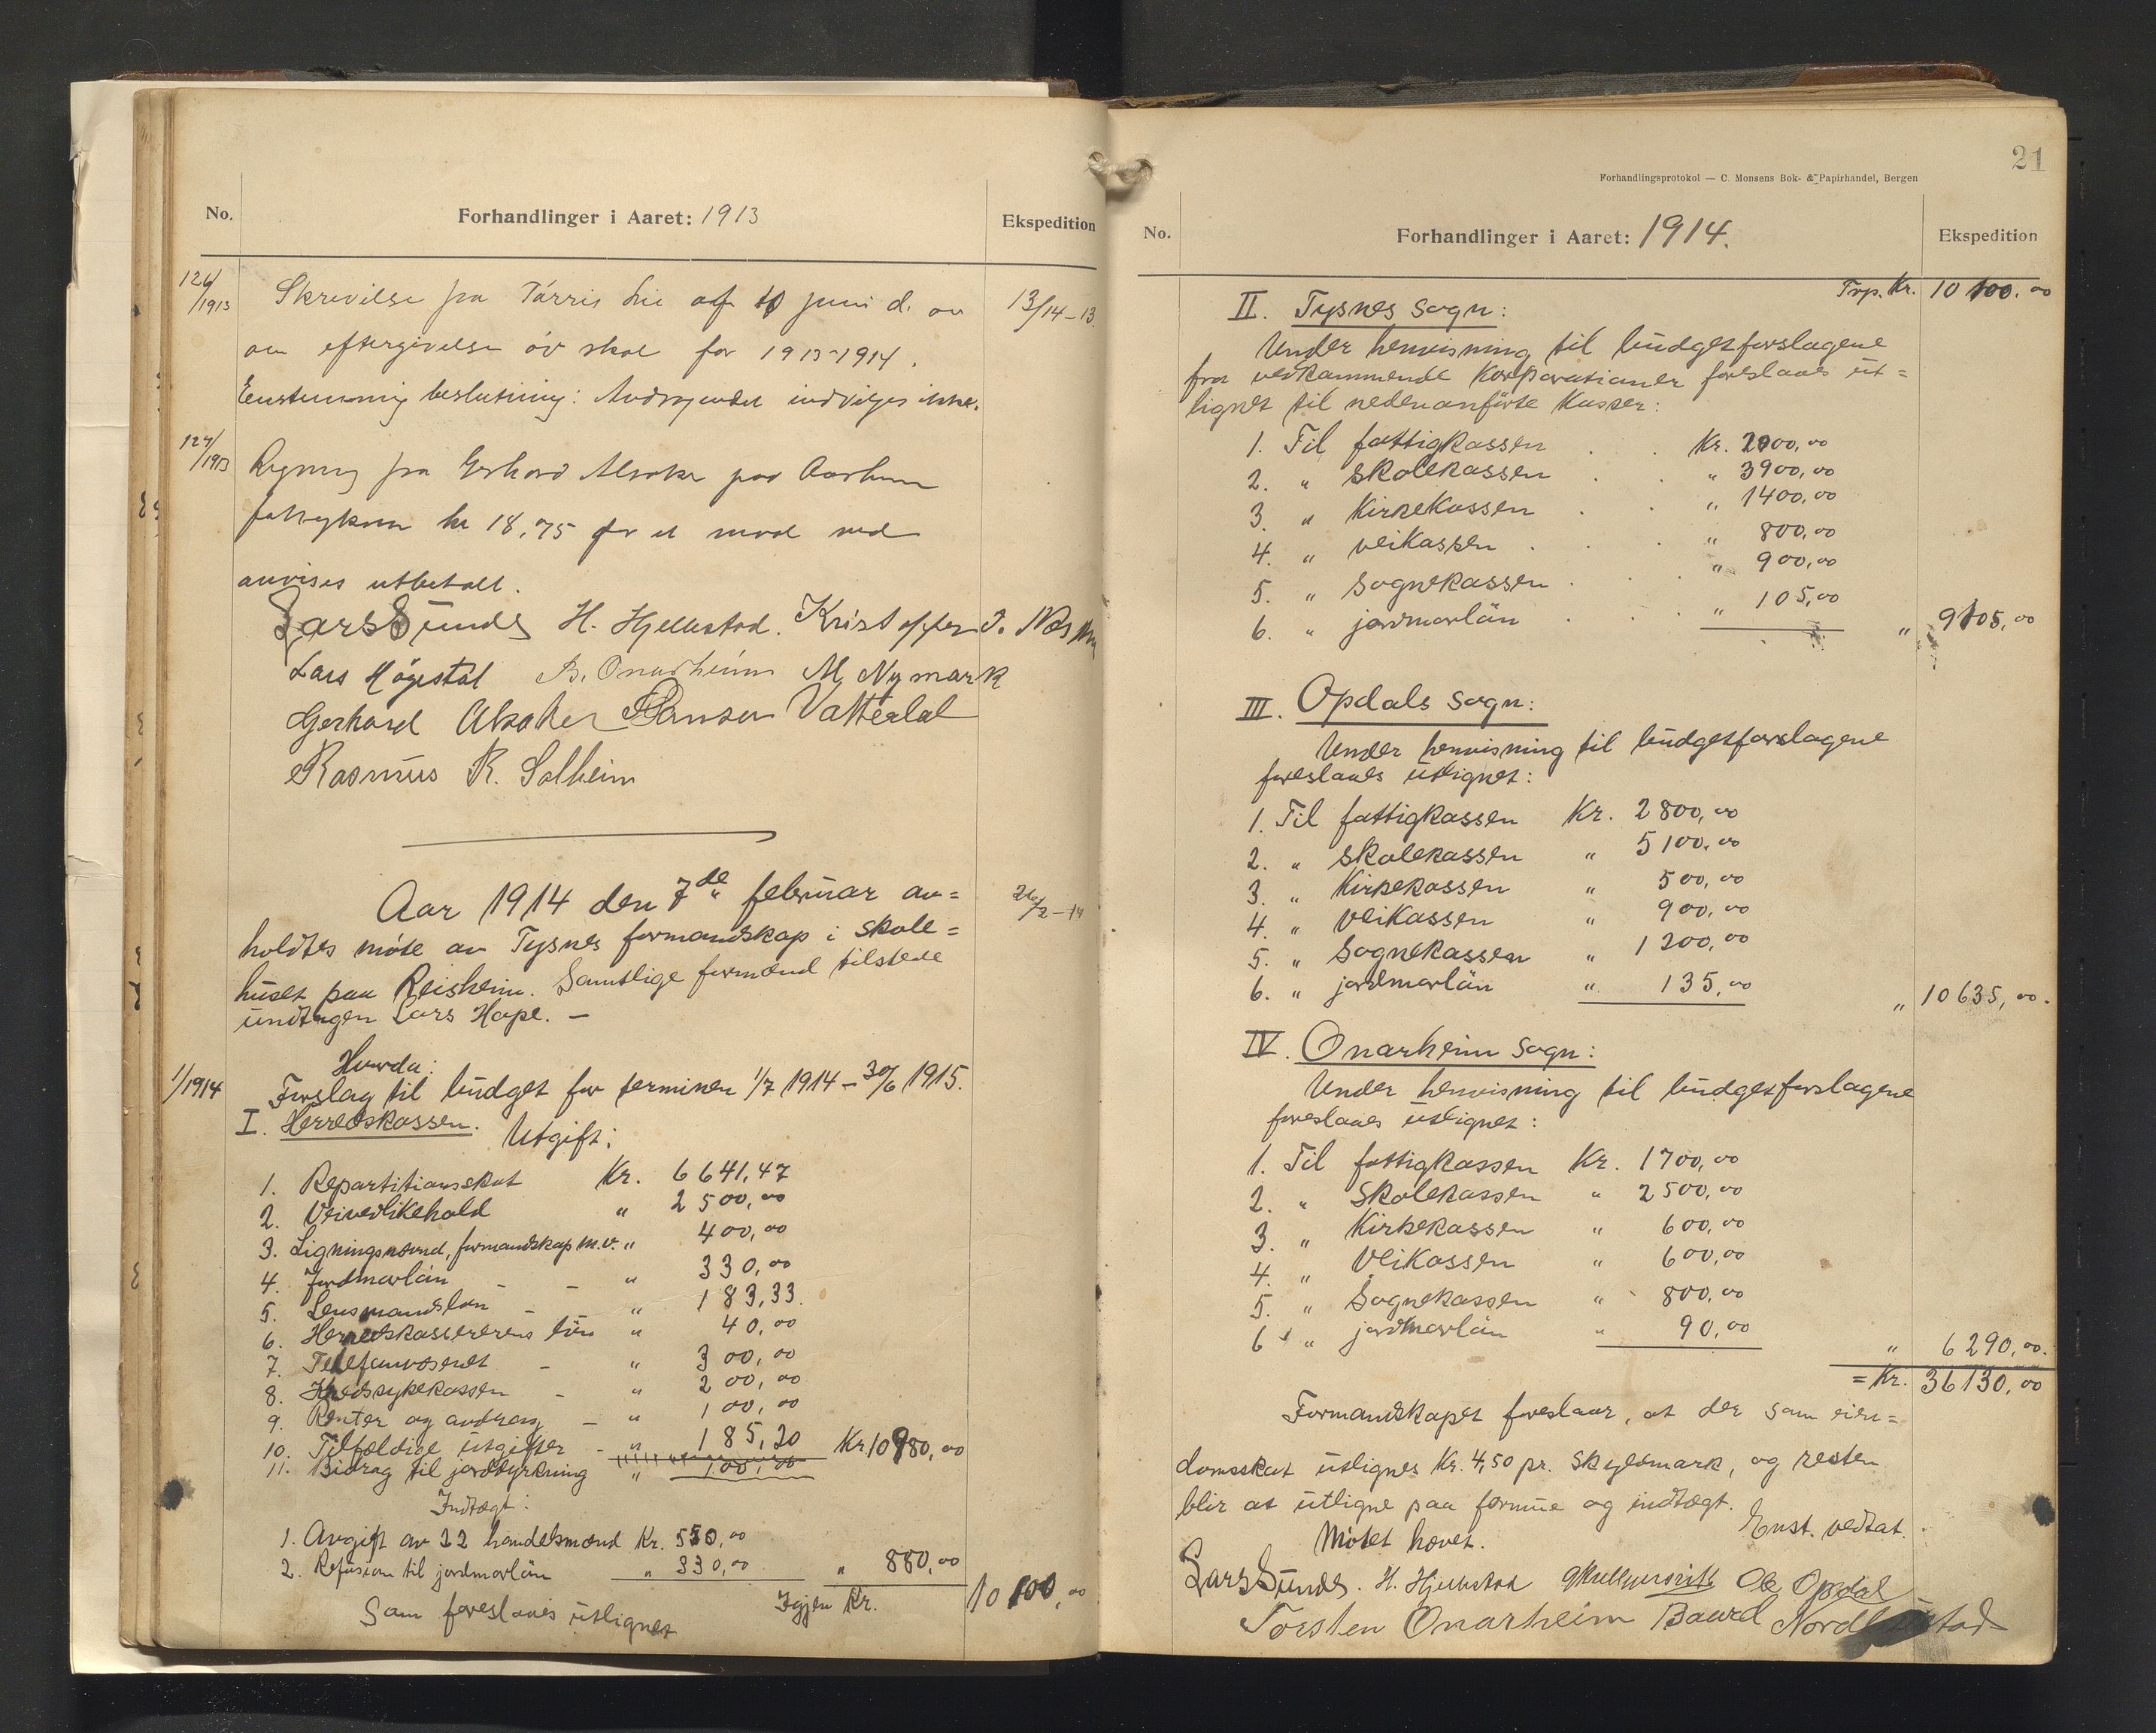 No.
Forhandlinger i Aaret: 1913
Ekspedition
126/1913
Skrivelse fra Tårris Lie af 10 juni d. aar
13/14-13.
om eftergivelse av skat for 1913-1914.
Enstemmig beslutning: Andragendet indvilges ikke.
127/1913
Regning fra Gerhard Alsaker paa Aarhuus
fattigkom kr 18,75 for et maal ved
anvises utbetalt.
Lars Sunde H. Hjellestad. Kristoffer J. Næs
Lars Høgestøl B. Onarheim M. Nymark
Gerhard Alsaker Hansen Vatterdal
Rasmus R. Solheim
Aar 1914 den 7de februar av=
26/2-14
holdtes møte av Tysnes formandskap i skole=
huset paa Reisheim. Samtlige formænd tilstede
undtagen Lars Hope. —
Hvorda:
1/1914
Forslag til budget for terminen 1/7 1914 – 30/6 1915.
I. Herredskassen. Utgift:
1. Repartitionsskat Kr. 6641,47
2. Veivedlikehold " 2500,00
3. Ligningsnævnd, formandskap m.v. " 400,00
4. Jordmorløn - - " 330,00
5. Lensmandsløn - " 183,33.
6. Herredskassererens løn " 40,00
7. Telefonvæsenet - " 300,00
8. Kredssykekassen - " 200,00
9. Renter og andrag - " 100,00
10. Tilfældige utgifter - " 185,20 Kr. 10980,00
11. Bidrag til jorddyrkning " 100,00
Indtægt:
1. Avgift av 22 handelsmænd Kr. 550,00
2. Refusion til jordmorløn " 330,00 " 880,00
Som foreslaaes utlignet Igjen Kr. 10100,00
21
Forhandlingsprotokol — C. Monsens Bok- & Papirhandel, Bergen
No.
Forhandlinger i Aaret: 1914.
Ekspedition
Trp. Kr. 10100,00
II. Tysnes sogn:
Under henvisning til budgetforslagene
fra vedkommende korporationer foreslaaes ut=
lignet til nedenanførte kasser:
1. Til fattigkassen . . Kr. 2000,00
2. " skolekassen . . " 3900,00
3. " kirkekassen . . " 1400,00
4. " veikassen . . . " 800,00
5. " sognekassen . . " 900,00
6. " jordmorløn . . " 105,00
" 9105,00
III. Opdals sogn:
Under henvisning til budgetforslagene
foreslaaes utlignet:
1. Til fattigkassen Kr. 2800,00
2. " skolekassen " 5100,00
3. " kirkekassen " 500,00
4. " veikassen " 900,00
5. " sognekassen " 1200,00
6. " jordmorløn " 135,00
" 10635,00.
IV. Onarheim sogn:
Under henvisning til budgetforslagene
foreslaaes utlignet:
1. Til fattigkassen Kr. 1700,00
2. " skolekassen " 2500,00
3. " kirkekassen " 600,00
4. " veikassen " 600,00
5. " sognekassen " 800,00
6. " jordmorløn " 90,00
" 6290,00.
= Kr. 36130,00
Formandskapet foreslaar, at der som eien=
domsskat utlignes Kr. 4,50 pr. skyldmark, og resten
blir at utligne paa formue og indtægt.
Enst. vedtat.
Møtet hævet.
Lars Sunde. H. Hjellestad Ole Opdal
Torsten Onarheim Baard Nordbustad